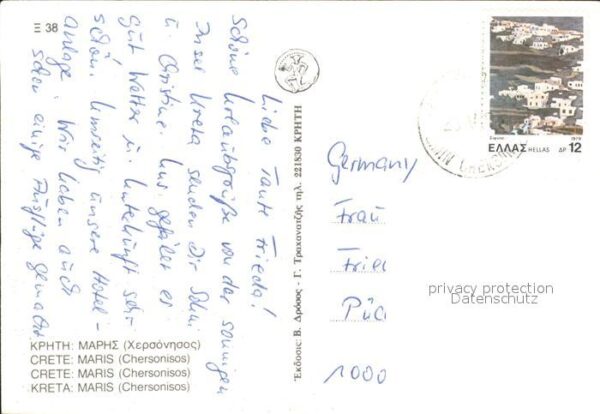 Ξ 38
Liebe Tante Frieda!
Schöne Urlaubsgrüße von der sonnigen
Insel Kreta senden Dir
u. Christine. Uns gefällt es
gut Wetter u. Unterkunft sehr
schön. Umseitig unsere Hotel-
anlage. Wir haben auch
schon einige Ausflüge gemacht
ΚΡΗΤΗ: ΜΑΡΗΣ (Χερσόνησος)
CRETE: MARIS (Chersonisos)
CRETE: MARIS (Chersonisos)
KRETA: MARIS (Chersonisos)
Έκδοσις: Β. Δρόσος - Γ. Τραχανατζής τηλ. 221830 ΚΡΗΤΗ
1979
ΕΛΛΑΣ HELLAS ΔΡ 12
Germany
Frau
Frie
Püc
1000
privacy protection
Datenschutz